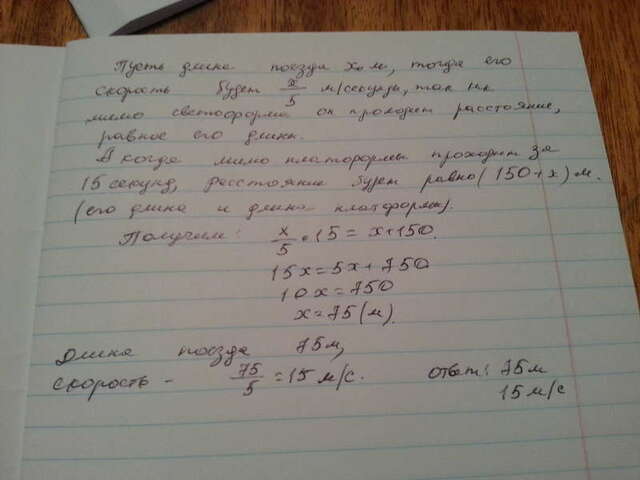 Пусть длина поезда х м, тогда его
скорость будет x/5 м/секунды, так как
мимо светофора он проходит расстояние,
равное его длине.
А когда мимо платформы проходит за
15 секунд, расстояние будет равно (150+х) м.
(его длина и длина платформы).
Получим: x/5 · 15 = x+150.
15x=5x+750
10x=750
x=75(м).
Длина поезда 75м,
скорость - 75/5 = 15 м/с. ответ: 75м
15 м/с